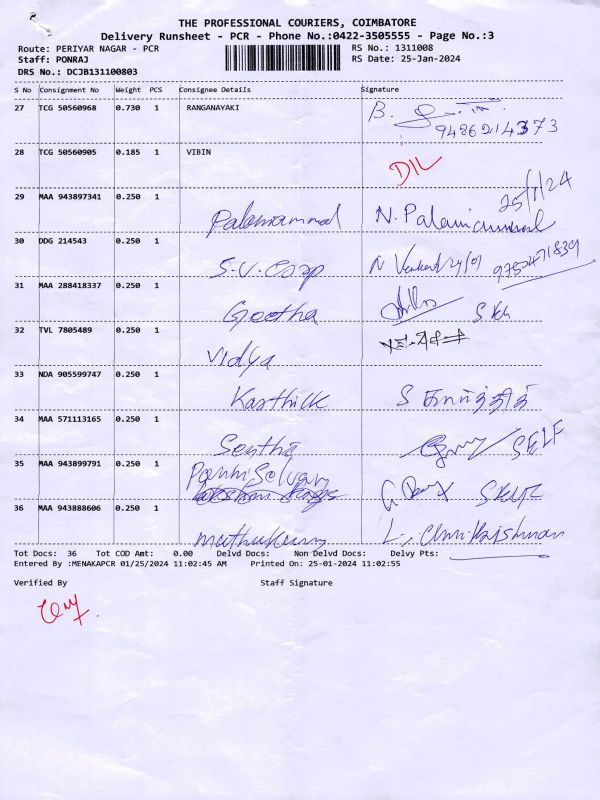 THE PROFESSIONAL COURIERS, COIMBATORE
Delivery Runsheet - PCR - Phone No.:0422-3505555 - Page No.:3
Route: PERIYAR NAGAR - PCR RS No.: 1311008
Staff: PONRAJ RS Date: 25-Jan-2024
DRS No.: DCJB131100803
S No Consignment No Weight PCS Consignee Details Signature
27 TCG 50560968 0.730 1 RANGANAYAKI B.
9486214373
28 TCG 50560905 0.185 1 VIBIN
DIL
25/1/24
29 MAA 943897341 0.250 1
Palaniammal N. Palaniammal
30 DDG 214543 0.250 1
S.V. Corp N Venkat 24/01 9750471839
31 MAA 288418337 0.250 1
Geetha
32 TVL 7805489 0.250 1
Vidya
33 NDA 905599747 0.250 1
Karthick S கார்த்திக்
34 MAA 571113165 0.250 1
Sentha SELF
35 MAA 943899791 0.250 1
PannirSelvan
36 MAA 943888606 0.250 1
muthukum L. Unnikrishnan
Tot Docs: 36 Tot COD Amt: 0.00 Delvd Docs: Non Delvd Docs: Delvy Pts:
Entered By :MENAKAPCR 01/25/2024 11:02:45 AM Printed On: 25-01-2024 11:02:55
Verified By Staff Signature